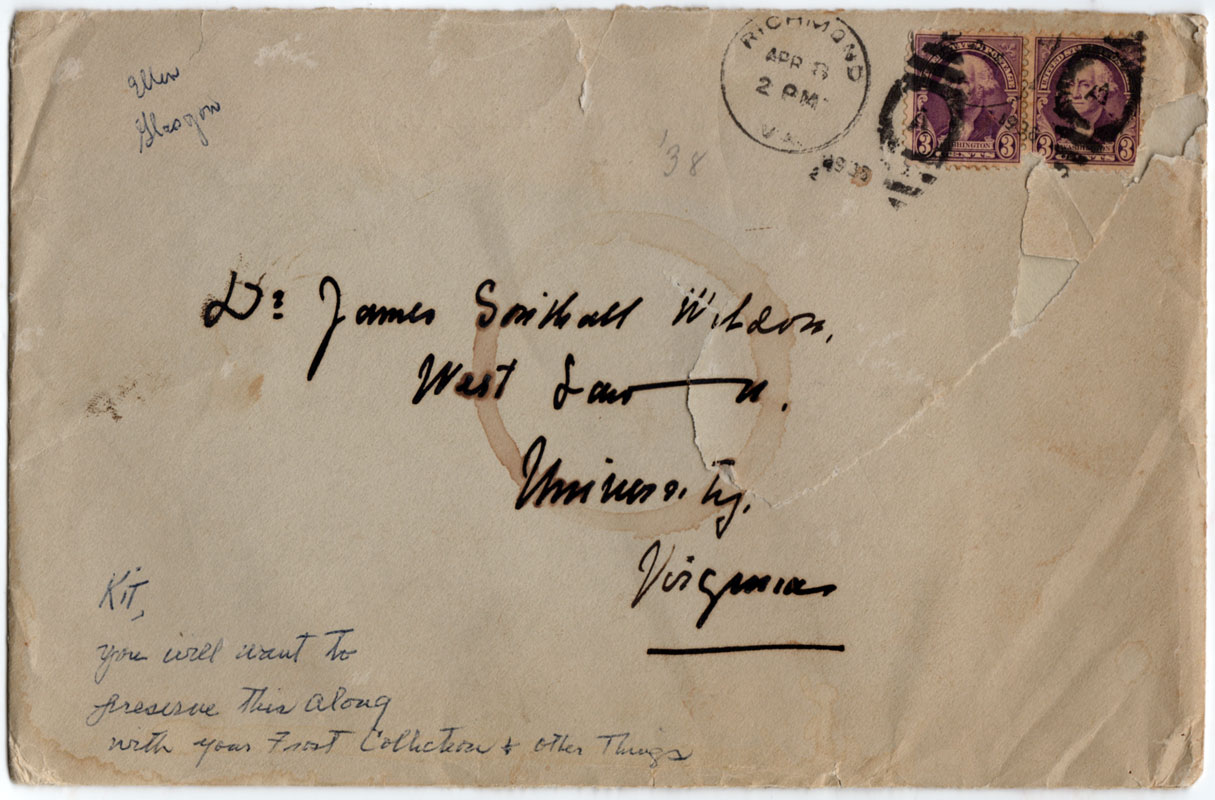 Ellen
Glasgow
RICHMOND
APR 8
2 PM
VA.
'38
WASHINGTON
3 3
3 3
Dr. James Southall Wilson,
West Lawn,
University,
Virginia
Kit,
you will want to
preserve this along
with your Frost Collection & other Things